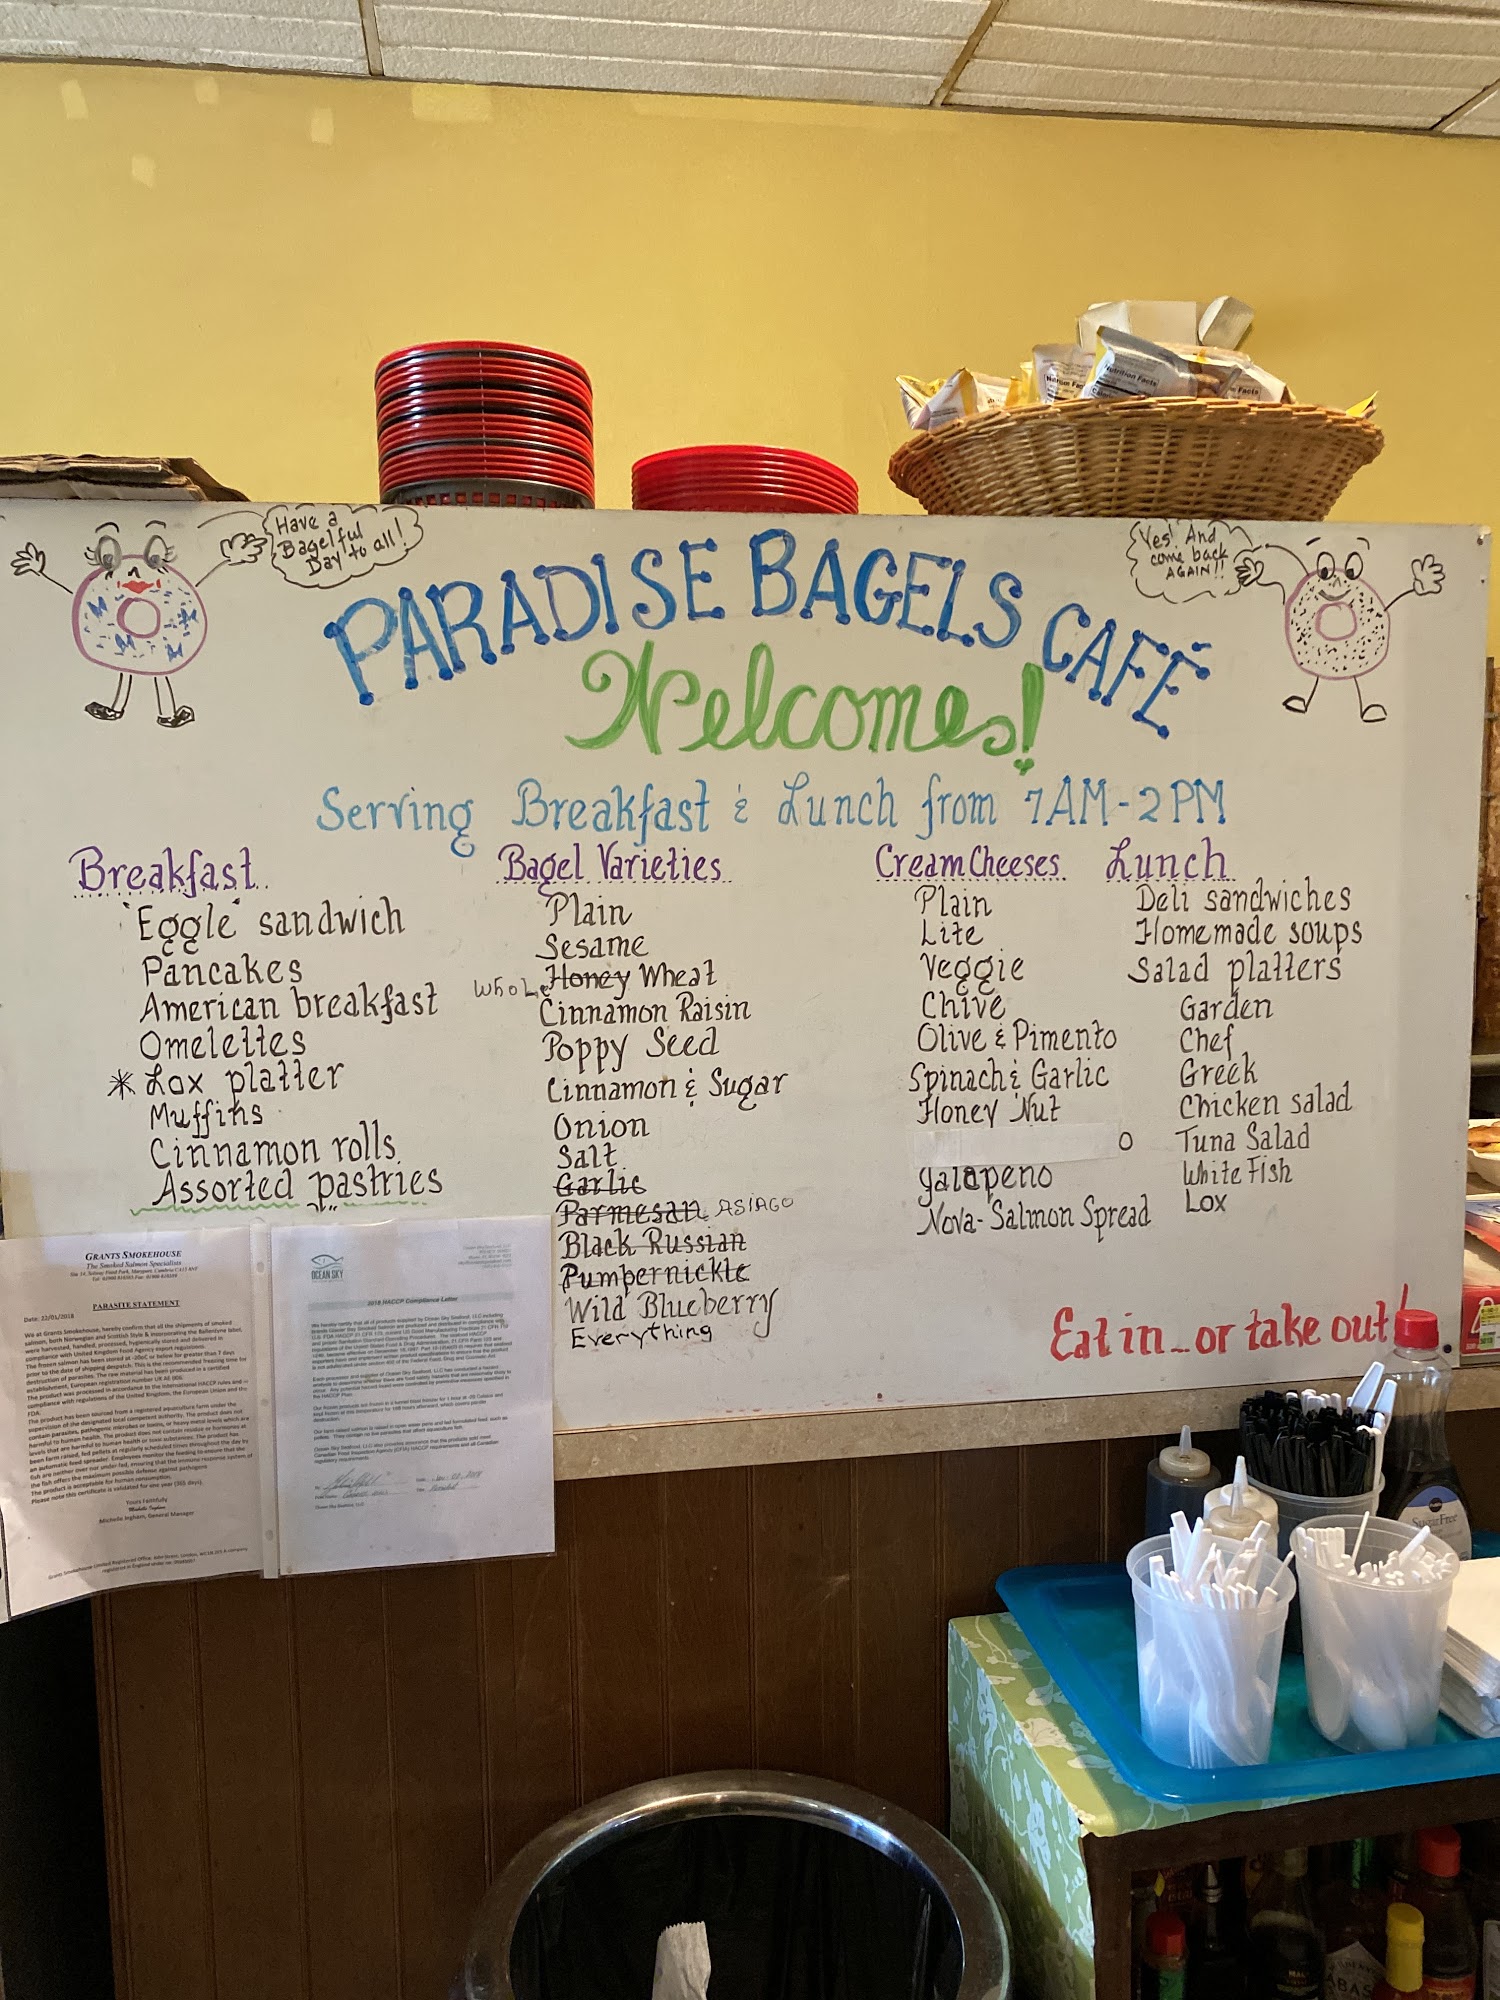 Have a
Bagelful
Day to all!
Yes! And
come back
AGAIN!!
PARADISE BAGELS CAFÉ
Welcomes!
Serving Breakfast & Lunch from 7AM-2PM
Breakfast
"Eggle" sandwich
Pancakes
American breakfast
Omelettes
* Lox platter
Muffins
Cinnamon rolls
Assorted pastries
Bagel Varieties
Plain
Sesame
Whole Honey Wheat
Cinnamon Raisin
Poppy Seed
Cinnamon & Sugar
Onion
Salt
Garlic
Parmesan ASIAGO
Black Russian
Pumpernickle
Wild Blueberry
Everything
Cream Cheeses
Plain
Lite
Veggie
Chive
Olive & Pimento
Spinach & Garlic
Honey Nut
O
Jalapeno
Nova-Salmon Spread
Lunch
Deli sandwiches
Homemade soups
Salad platters
Garden
Chef
Greek
Chicken salad
Tuna Salad
White Fish
Lox
Eat in... or take out!
GRANTS SMOKEHOUSE
The Smoked Salmon Specialists
PARASITE STATEMENT
Date: 22/01/2018
Yours Faithfully
Michelle Ingham, General Manager
OCEAN SKY
2018 HACCP Compliance Letter
Nutrition Facts
Nutrition Facts
Sugar Free